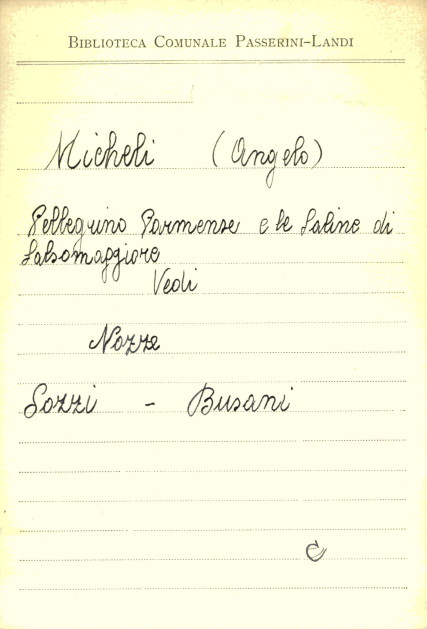 BIBLIOTECA COMUNALE PASSERINI-LANDI
Micheli (Angelo)
Pellegrino Parmense e le Saline di
Salsomaggiore
Vedi
Nozze
Sozzi - Busani
C